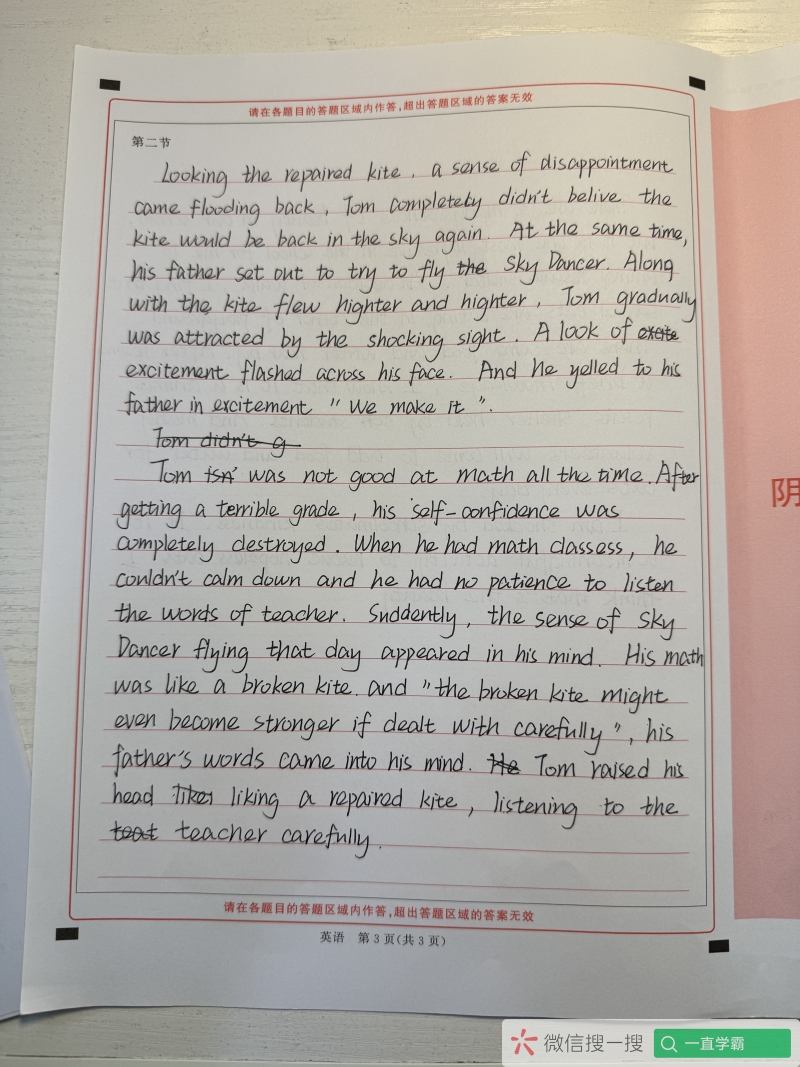 请在各题目的答题区域内作答,超出答题区域的答案无效
第二节
Looking the repaired kite, a sense of disappointment
came flooding back, Tom completely didn't belive the
kite would be back in the sky again. At the same time,
his father set out to try to fly the Sky Dancer. Along
with the kite flew highter and highter, Tom gradually
was attracted by the shocking sight. A look of excite
excitement flashed across his face. And he yelled to his
father in excitement "We make it".
Tom didn't g
Tom isn' was not good at math all the time. After
getting a terrible grade, his self-confidence was
completely destroyed. When he had math classess, he
couldn't calm down and he had no patience to listen
the words of teacher. Suddently, the sense of Sky
Dancer flying that day appeared in his mind. His math
was like a broken kite. and "the broken kite might
even become stronger if dealt with carefully", his
father's words came into his mind. He Tom raised his
head likes liking a repaired kite, listening to the
teat teacher carefully.
请在各题目的答题区域内作答,超出答题区域的答案无效
英语 第3页(共3页)
阴
微信搜一搜
一直学霸